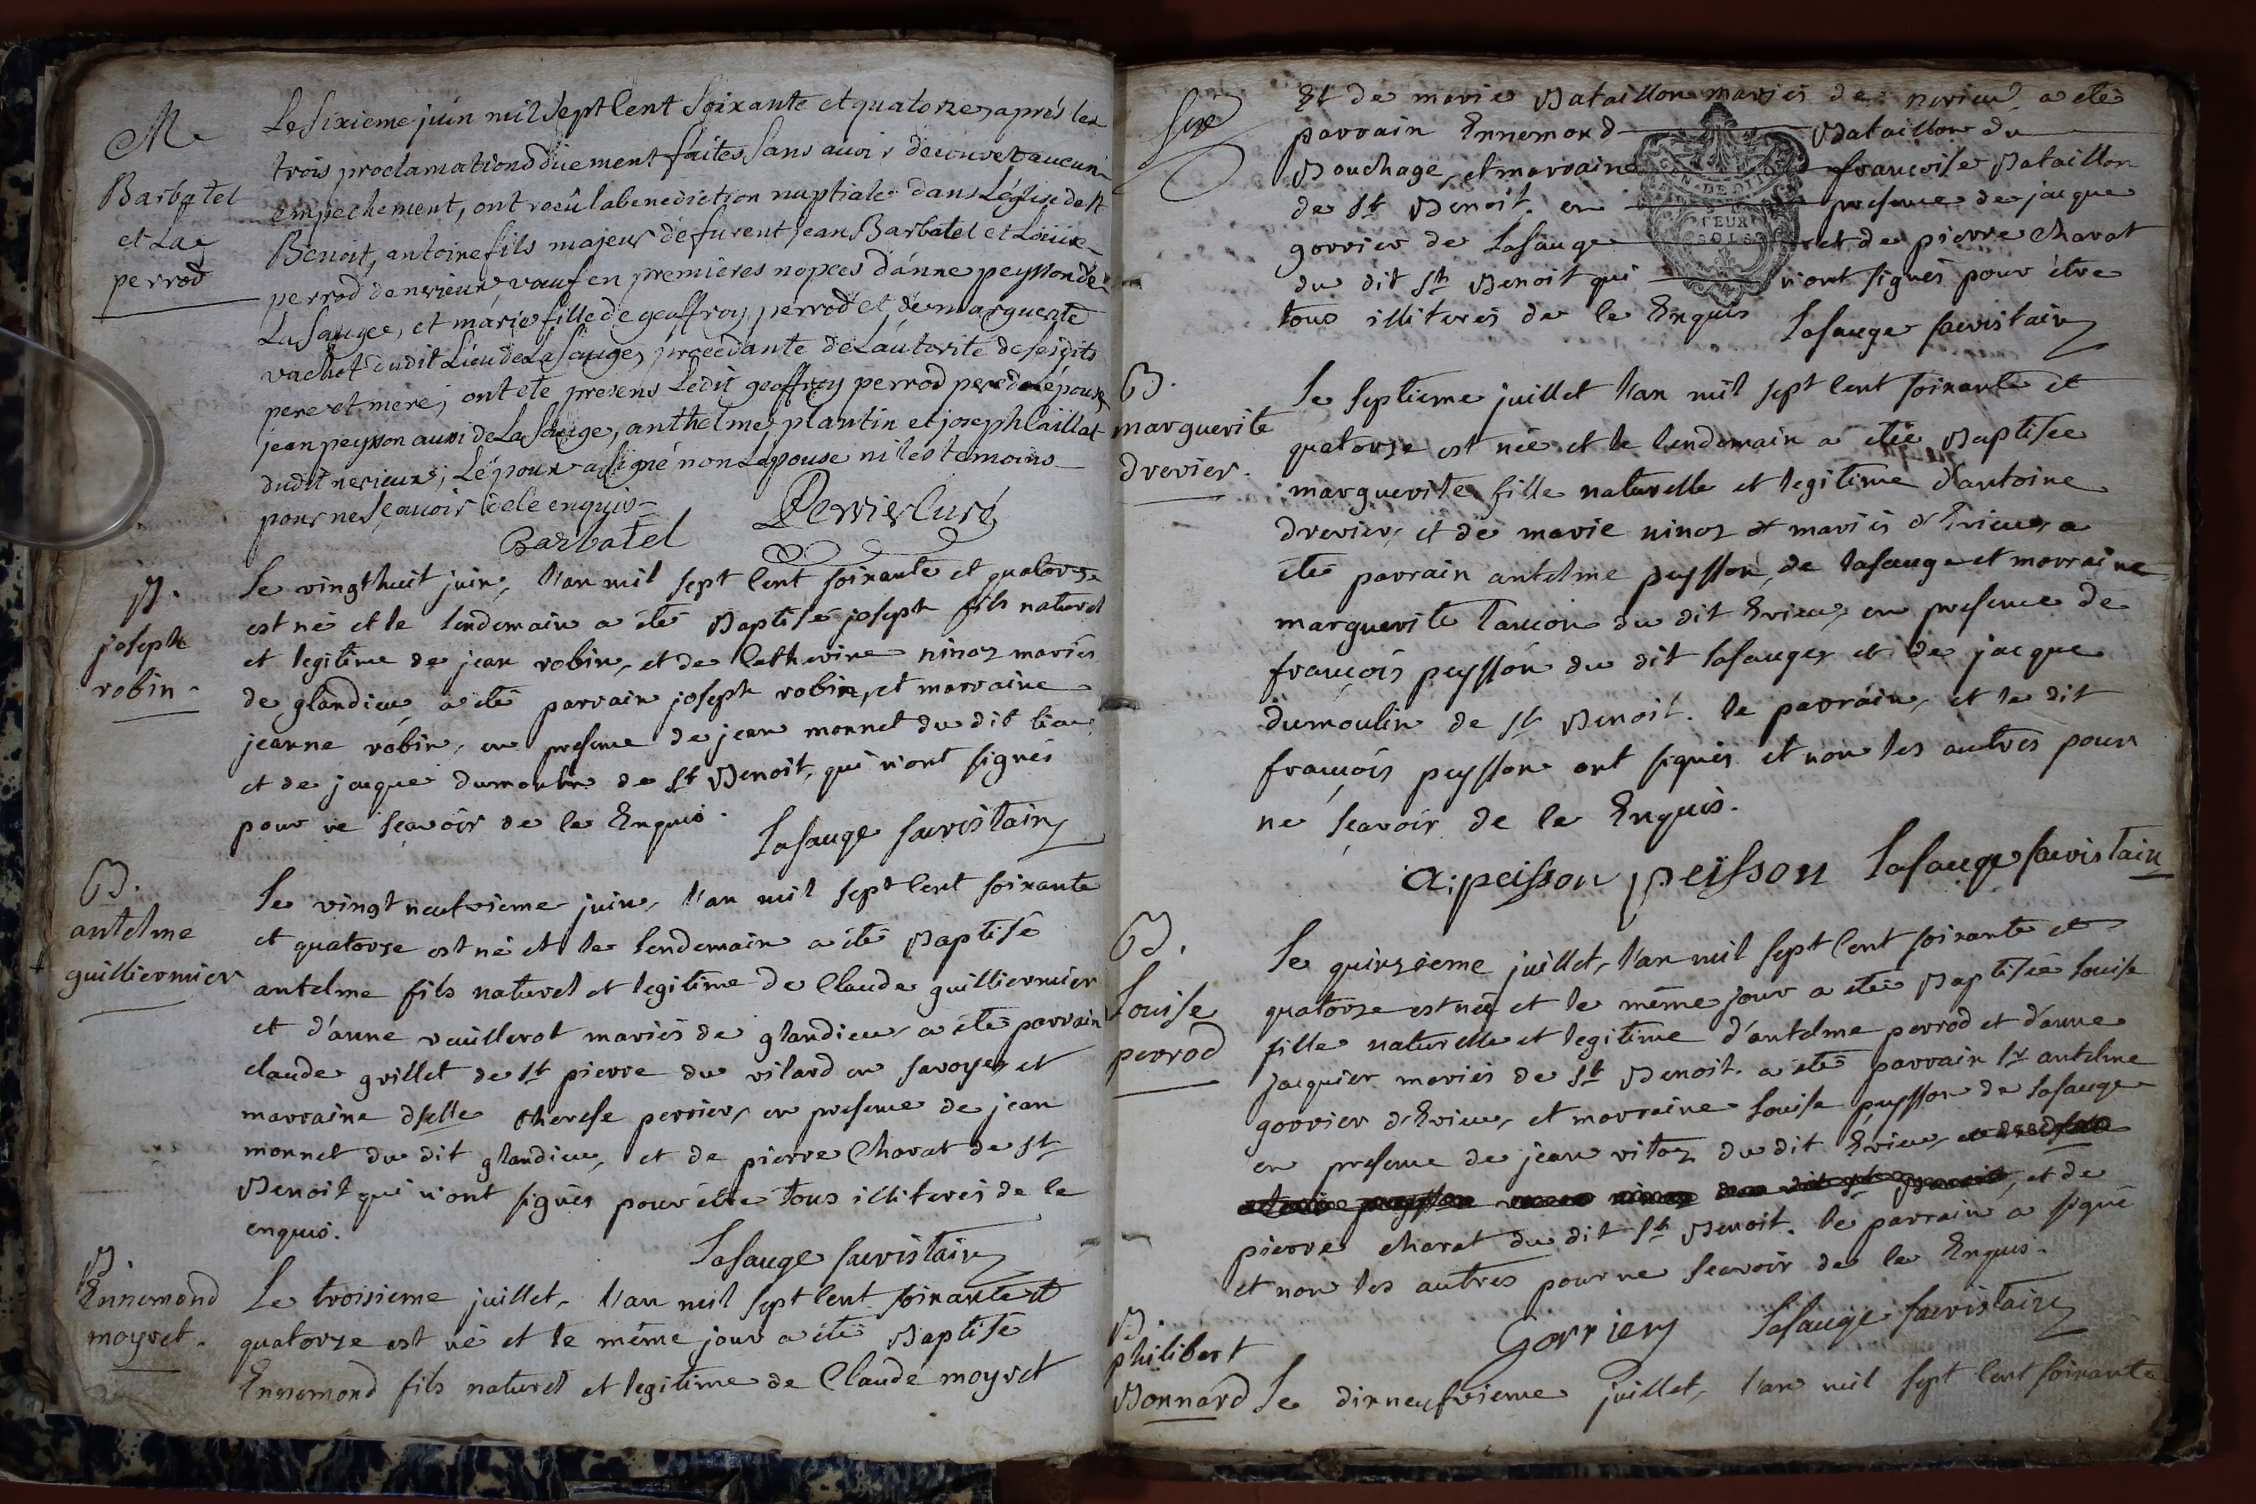 M
Barbatel
et La
perrod
Le sixieme juin mil sept Cent Soixante et quatorze, aprés les
trois proclamations düement faites Sans avoir decouvert aucun
empechement, ont reçû la benediction nuptiale dans L'église de St
Benoit, antoine fils majeur de furent Jean Barbatel et Loüise
perrod de nerieux veuf en premieres nopces d'anne peysson de
La Sauge, et marie fille de geoffroy perrod et de marguerite
vachet dudit Lieu de La Sauge, procedante de L'autorité de ses dits
pere et mere; ont eté presens Ledit geoffroy perrod pere de L'épouse
jean peysson aussi de La Sauge, anthelme plantin et joseph Caillat
dudit nerieux; L'époux a signé non L'épouse ni les temoins
pour ne Sçavoir de ce enquis
Barbatel Perrier Curé
B.
joseph
robin
Le vingt huit juin, l'an mil sept Cent soixante et quatorze
est né et le lendemain a été Baptisé joseph fils naturel
et legitime de jean robin, et de Catherine ninoz mariés
de glandieu, a été parrain joseph robin, et marraine
jeanne robin, en presence de jean monnet du dit lieu,
et de jacque dumoulin de St Benoit, qui n'ont signés
pour ne sçavoir de ce Enquis.
Lasauge sacristain
B.
antelme
guilliermier
Le vingt neufvieme juin, l'an mil sept Cent soixante
et quatorze est né et le lendemain a été Baptisé
antelme fils naturel et legitime de Claude guilliermier
et d'anne veuillerot mariés de glandieu, a été parrain
claude grillet de St pierre du vilard en savoye, et
marraine dselle therese perrier, en presence de jean
monnet du dit glandieu, et de pierre Charat de St
Benoit qui n'ont signés pour être tous illiterés de ce
enquis.
Lasauge sacristain
B.
Ennemond
moyret.
Le troisieme juillet, l'an mil sept Cent soixante et
quatorze est né et le même jour a été Baptisé
Ennemond fils naturel et legitime de Claude moyret
Et de marie Bataillon mariés de nerieu, a été
parrain Ennemond Bataillon du
Bouchage, et marraine francoise Bataillon
de St Benoit. en presence de jacque
gorrier de Lasauge et de pierre Charat
du dit St Benoit qui n'ont signés pour être
tous illiterés de ce Enquis Lasauge sacristain
B.
marguerite
drevier.
Le septieme juillet l'an mil sept Cent soixante et
quatorze est née et le lendemain a étée Baptisée
marguerite fille naturelle et legitime d'antoine
drevier, et de marie ninoz mariés d'Erieu, a
été parrain antelme peysson, de lasauge et marraine
marguerite du dit Erieu, en presence de
françois peysson du dit lasauge, et de jacque
dumoulin de St Benoit. le parrain, et le dit
françois peysson ont signés et non les autres pour
ne sçavoir de ce Enquis.
a: peisson peisson Lasauge sacristain
B.
Louise
perrod
Le quinzieme juillet, l'an mil sept Cent soixante et
quatorze est née et le même jour a étée Baptisée Louise
fille naturelle et legitime d'antelme perrod et d'anne
jacquier mariés de St Benoit. a été parrain Sr antelme
gorrier d'Erieu, et marraine Louise peysson de Lasauge
en presence de jean vitoz du dit Erieu, et de
pierre charat du dit St Benoit. le parrain a signé
et non les autres pour ne sçavoir de ce Enquis.
Gorrier Lasauge sacristain
B.
philibert
Bonnard
Le dixneufvieme juillet, l'an mil sept Cent soixante